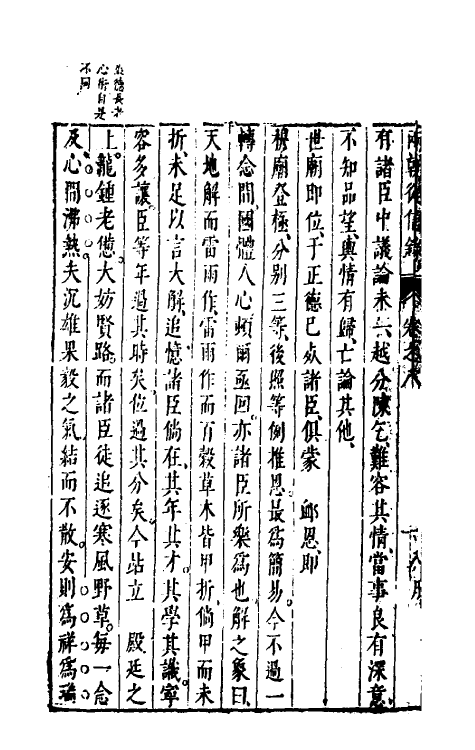 兩朝從信錄 卷之八 八月
有諸臣中議論未亡越分陳乞難容其情當事良有深意
不知品望輿情有歸亡論其他
世廟即位于正德已故諸臣俱蒙 卹恩即
穆廟登極分別三等後照等例推恩最為簡易今不過一
轉念間國體人心頓爾亟回亦諸臣所樂為也解之象曰
天地解而雷雨作雷雨作而百穀草木皆甲折倘甲而未
折未足以言大解追憶諸臣倘在其年其才其學其識寧
容多讓臣等年過其時矣位過其分矣今站立 殿廷之
上龍鍾老憊大妨賢路而諸臣徒追逐寒風野草每一念
及心間沸熱夫沉雄果毅之氣結而不散安則為祥為瑞
長者
心術自是
不同